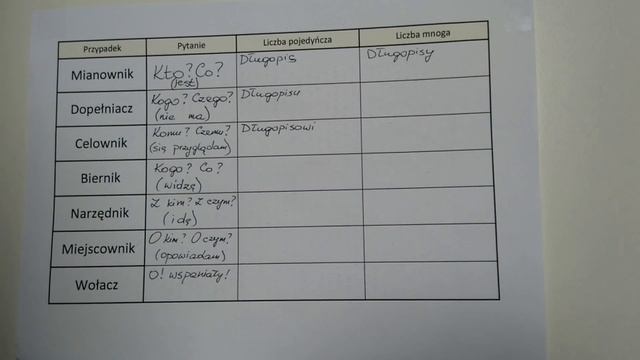 Przypadek Pytanie Liczba pojedyńcza Liczba mnoga
Mianownik Kto? Co? Długopis Długopisy
(jest)
Dopełniacz Kogo? Czego? Długopisu
(nie ma)
Celownik Komu? Czemu? Długopisowi
(się przyglądam)
Biernik Kogo? Co?
(widzę)
Narzędnik Z kim? Z czym?
(idę)
Miejscownik O kim? O czym?
(opowiadam)
Wołacz O! wspaniały!